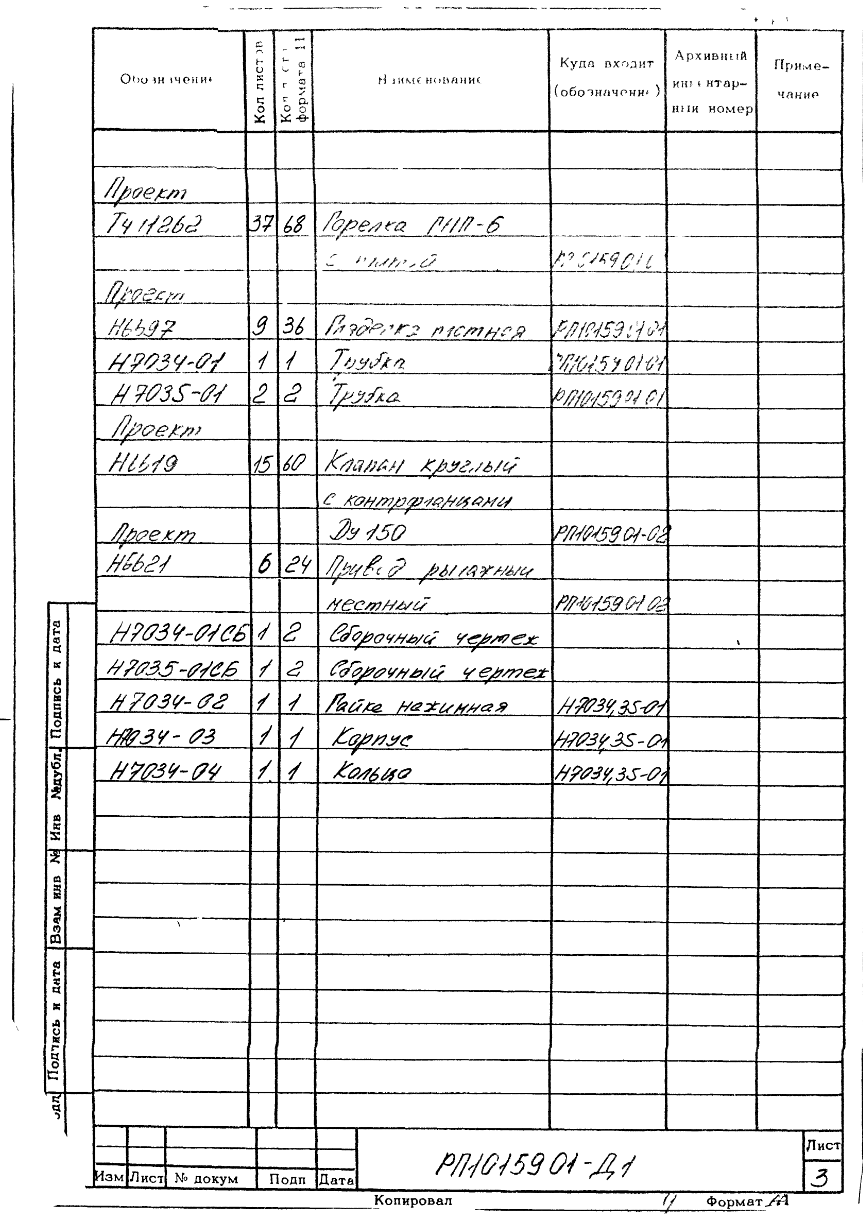 Обозначение Кол листов Кол листов формата 11 Наименование Куда входит (обозначение) Архивный инвентарный номер Приме-чание
Проект
ТЧ11262 37 68 Горелка ГНП-6
с плитой
Проект
Н6597 9 36 РП10159 01 01
Н7034-01 1 1 Трубка РП10159 01 01
Н7035-01 2 2 Трубка РП10159 01 01
Проект
15 60 Клапан круглый
с контрфланцами
Проект Ду 150 РП10159 01-02
Н6621 6 24 Привод рычажный
местный РП10159 01 02
Н7034-01СБ 1 2 Сборочный чертеж
Н7035-01СБ 1 2 Сборочный чертеж
Н7034-02 1 1 Гайка нажимная Н7034,35-01
Н7034-03 1 1 Корпус Н7034,35-01
Н7034-04 1 1 Кольцо Н7034,35-01
Подпись и дата
Инв № дубл.
Взам инв №
Подпись и дата
РП10159 01-Д1
Лист
3
Изм Лист № докум Подп Дата
Копировал Формат